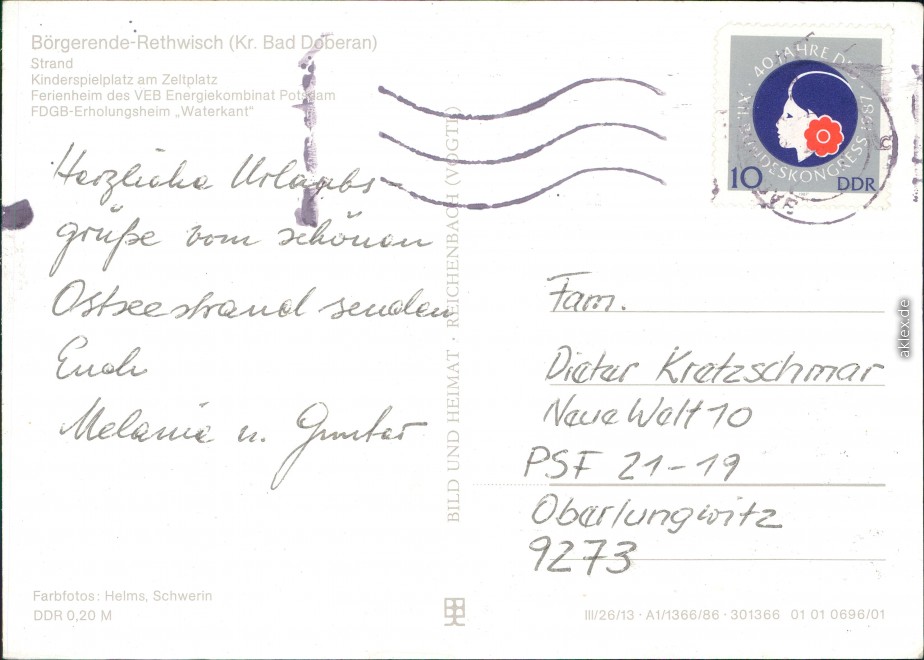 Börgerende-Rethwisch (Kr. Bad Doberan)
Strand
Kinderspielplatz am Zeltplatz
Ferienheim des VEB Energiekombinat Potsdam
FDGB-Erholungsheim „Waterkant"
Herzliche Urlaubs-
grüße vom schönen
Ostseestrand senden
Euch
Melanie u. Gunter
Farbfotos: Helms, Schwerin
DDR 0,20 M
BILD UND HEIMAT · REICHENBACH (VOGTL)
40 JAHRE DFD
XII. BUNDESKONGRESS 1987
10 DDR
Fam.
Dieter Kretzschmar
Neue Welt 10
PSF 21-19
Oberlungwitz
9273
III/26/13 · A1/1366/86 · 301366 01 01 0696/01
aklex.de